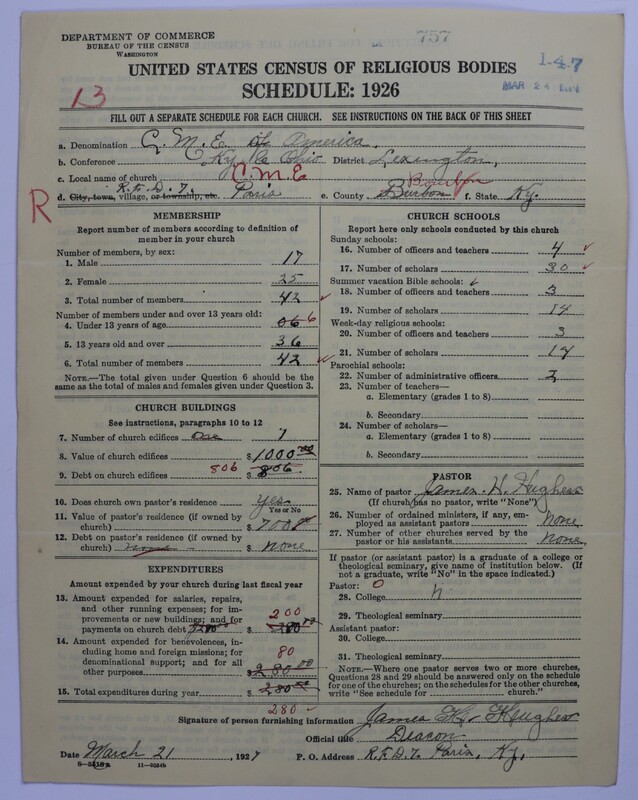 DEPARTMENT OF COMMERCE
BUREAU OF THE CENSUS
WASHINGTON
757
147
MAR 24
UNITED STATES CENSUS OF RELIGIOUS BODIES
SCHEDULE: 1926
13
FILL OUT A SEPARATE SCHEDULE FOR EACH CHURCH. SEE INSTRUCTIONS ON THE BACK OF THIS SHEET
a. Denomination C. M. E. of America,
b. Conference Ky & Ohio District Lexington,
c. Local name of church C.M.E
R
d. City, town, village, or township, etc. R.F.D.7. Paris e. County Burbon Bourbon f. State Ky.
MEMBERSHIP
Report number of members according to definition of
member in your church
Number of members, by sex:
1. Male 17
2. Female 25
3. Total number of members 42
Number of members under and over 13 years old:
4. Under 13 years of age 06 6
5. 13 years old and over 36
6. Total number of members 42
NOTE.—The total given under Question 6 should be
same as the total of males and females given under Question 3.
CHURCH BUILDINGS
See instructions, paragraphs 10 to 12
7. Number of church edifices One 1
8. Value of church edifices $1000.00
9. Debt on church edifices 806 $ 806.
10. Does church own pastor's residence yes
Yes or No
11. Value of pastor's residence (if owned by
church) $ 700
12. Debt on pastor's residence (if owned by
church) none $ none
EXPENDITURES
Amount expended by your church during last fiscal year
13. Amount expended for salaries, repairs,
and other running expenses; for im-
provements or new buildings; and for
payments on church debt $ 200
14. Amount expended for benevolences, in-
cluding home and foreign missions; for
denominational support; and for all
other purposes $ 280.00 80
15. Total expenditures during year $ 280.00
280
CHURCH SCHOOLS
Report here only schools conducted by this church
Sunday schools:
16. Number of officers and teachers 4
17. Number of scholars 30
Summer vacation Bible schools:
18. Number of officers and teachers 3
19. Number of scholars 14
Week-day religious schools:
20. Number of officers and teachers 3
21. Number of scholars 14
Parochial schools:
22. Number of administrative officers 2
23. Number of teachers—
a. Elementary (grades 1 to 8)
b. Secondary
24. Number of scholars—
a. Elementary (grades 1 to 8)
b. Secondary
PASTOR
25. Name of pastor James. H. Hughes
(If church has no pastor, write "None")
26. Number of ordained ministers, if any, em-
ployed as assistant pastors none
27. Number of other churches served by the
pastor or his assistants none
If pastor (or assistant pastor) is a graduate of a college or
theological seminary, give name of institution below. (If
not a graduate, write "No" in the space indicated.)
Pastor: 0
28. College n
29. Theological seminary
Assistant pastor:
30. College
31. Theological seminary
NOTE.—Where one pastor serves two or more churches,
Questions 28 and 29 should be answered only on the schedule
for one of the churches; on the schedules for the other churches,
write "See schedule for church."
Signature of person furnishing information James H. Hughes
Official title Deacon
Date March 21, 1927 P. O. Address R.F.D.7. Paris, Ky,
11—9584b